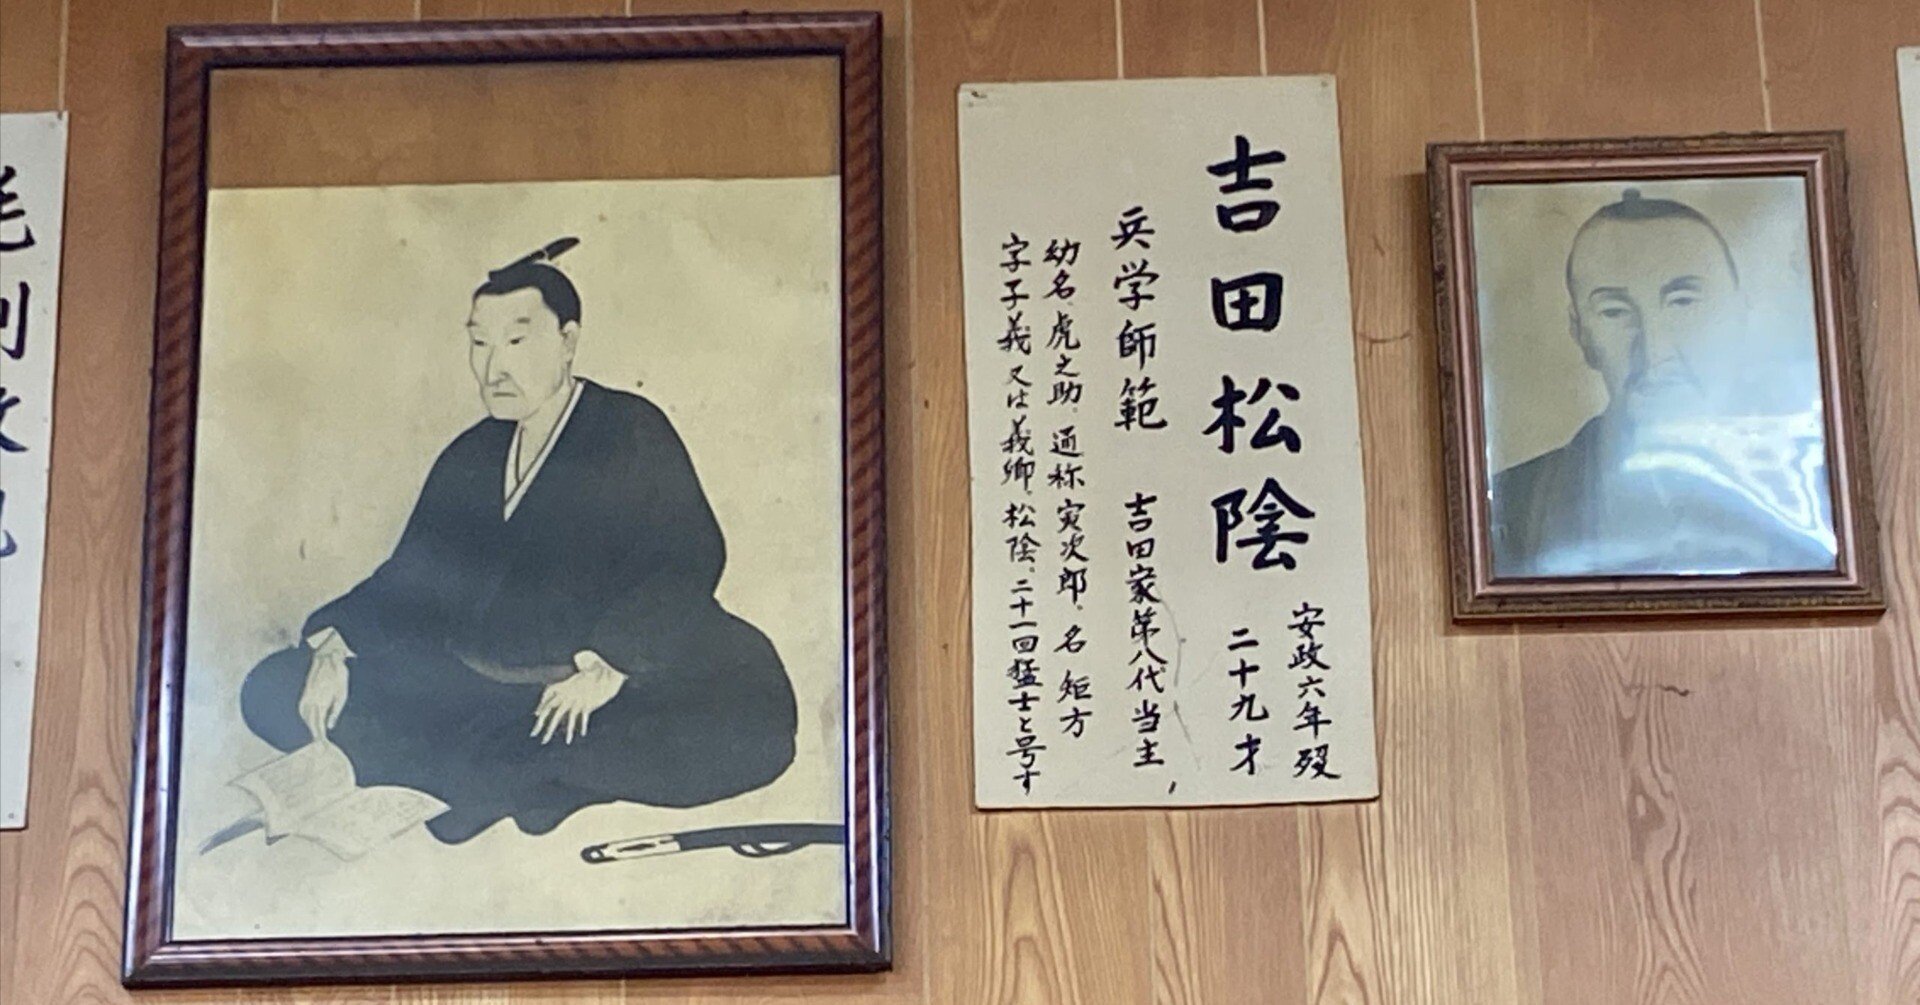 吉田松陰
安政六年歿
二十九才
兵学師範 吉田家第八代当主、
幼名、虎之助、通称寅次郎、名 矩方
字子義又は義卿、松陰、二十一回猛士と号す
毛利敬親